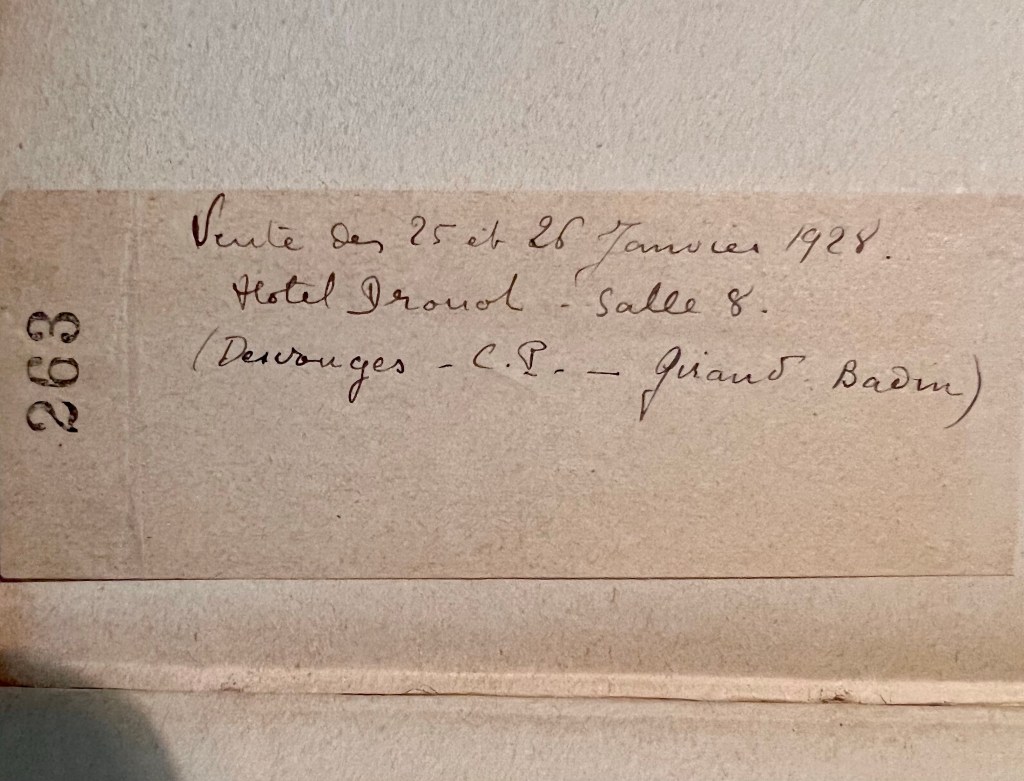 263
Vente des 25 et 26 Janvier 1928.
Hotel Drouot - Salle 8.
(Desvouges - C.P. - Giraud Badin)